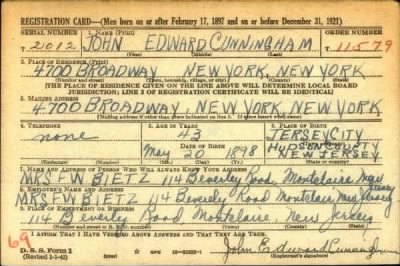 REGISTRATION CARD—(Men born on or after February 17, 1897 and on or before December 31, 1921)
SERIAL NUMBER 1. NAME (Print) ORDER NUMBER
T 2012 JOHN EDWARD CUNNINGHAM T 11579
(First) (Middle) (Last)
2. PLACE OF RESIDENCE (Print)
4700 BROADWAY NEW YORK, NEW YORK
(Number and street) (Town, township, village, or city) (County) (State)
(THE PLACE OF RESIDENCE GIVEN ON THE LINE ABOVE WILL DETERMINE LOCAL BOARD
JURISDICTION; LINE 2 OF REGISTRATION CERTIFICATE WILL BE IDENTICAL)
3. MAILING ADDRESS
4700 BROADWAY, NEW YORK, NEW YORK
(Mailing address if other than place indicated on line 2. If same insert word same)
4. TELEPHONE 5. AGE IN YEARS 6. PLACE OF BIRTH
none 43 JERSEY CITY
DATE OF BIRTH HUDSON COUNTY
May 20 1898 NEW JERSEY
(Exchange) (Number) (Mo.) (Day) (Yr.) (State or country)
7. NAME AND ADDRESS OF PERSON WHO WILL ALWAYS KNOW YOUR ADDRESS
MRS F W BIETZ 114 Beverley Road, Montclair, New Jersey
8. EMPLOYER'S NAME AND ADDRESS
MRS F W BIETZ 114 Beverly Road Montclair, New Jersey
9. PLACE OF EMPLOYMENT OR BUSINESS
114 Beverly Road Montclair, New Jersey
(Number and street or R. F. D. number) (Town) (County) (State)
69 I AFFIRM THAT I HAVE VERIFIED ABOVE ANSWERS AND THAT THEY ARE TRUE.
D. S. S. Form 1
(Revised 1-1-42) (over)
John Edward Cunningham